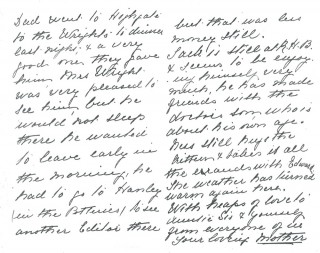 Dad went to Highgate
to the Wrights to dinner
last night, & a very
good one they gave
him. Mrs Wright
was very pleased to
see him but he
would not sleep
there he wanted
to leave early in
the morning, he
had to go to Hanley
(in the Potteries) to see
another Editor there
but that was less
money still.
Jack is still at R.H.B.
& seems to be enjoy-
ing himself very
much, he has made
friends with the
doctors son who is
about his own age.
Sus still keeps the
kitten & takes it all
the errands with Edward
The weather has turned
warm again here.
With heaps of love to
Auntie Sis & yourself
from everyone of us
Your loving Mother